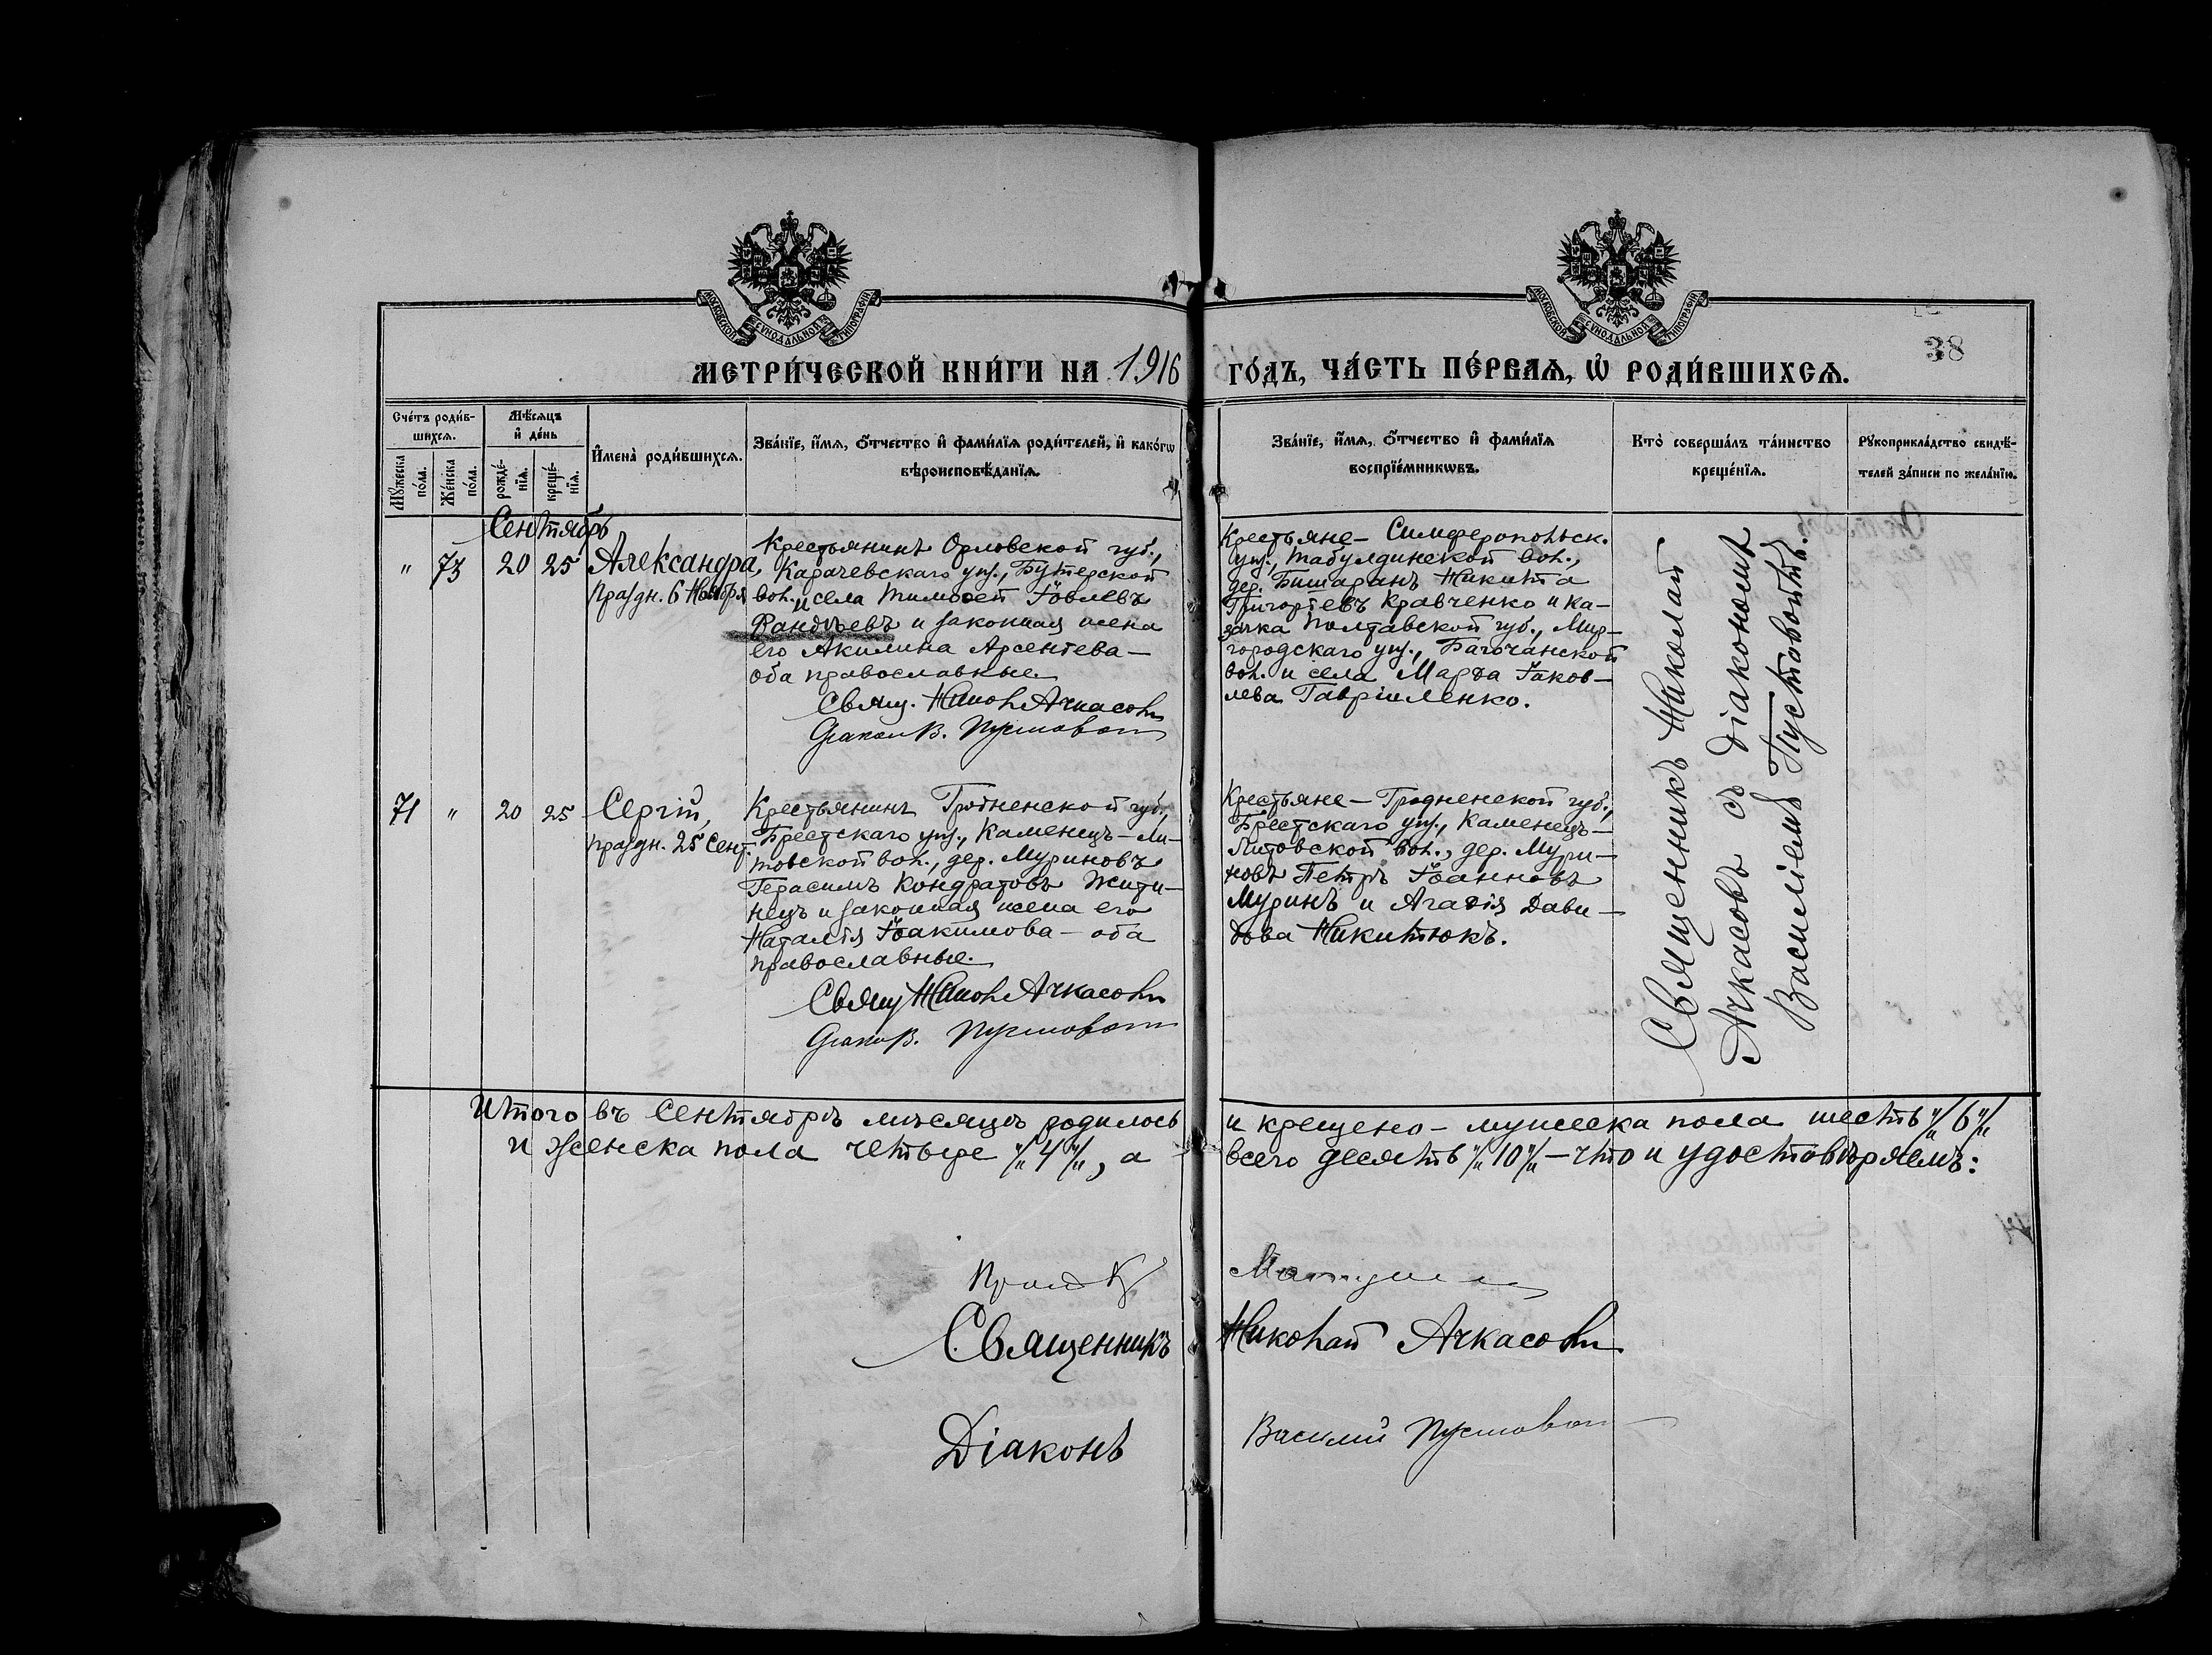 МОСКОВСКОЙ СѴНОДАЛЬНОЙ ТИПОГРАФІИ
МОСКОВСКОЙ СѴНОДАЛЬНОЙ ТИПОГРАФІИ
МЕТРИ́ЧЕСКОЙ КНИ́ГИ НА 1916 ГО́ДЪ, ЧА́СТЬ ПЕ́РВАѦ, Ѡ РОДИ́ВШИХСѦ.
38
Сче́тъ роди́в-
шихсѧ.
Мꙋ́жеска по́ла.
Же́нска по́ла.
Мѣ́сѧцъ
и де́нь
рожде́-
нїѧ.
креще́-
нїѧ.
Имена̀ роди́вшихсѧ.
Зва́нїе, и́мѧ, о́тчество и фами́лїѧ роди́телей, и како́гѡ
вѣроисповѣ́данїѧ.
Зва́нїе, и́мѧ, о́тчество и фами́лїѧ
воспрїе́мникѡвъ.
Кто̀ соверша́лъ та́инство
креще́нїѧ.
Рꙋкоприкла́дство свидѣ́-
телей за́писи по жела́нїю.
Сентябрь
" 73 20 25 Александра,
праздн. 6 Ноября
Крестьянинъ Орловской губ.,
Карачевскаго уѣз., Бутерской
вол. и села Тимоѳей Іовлевъ
Фандѣевъ и законная жена
его Акилина Арсентева —
оба православные.
Свящ. Никол Ачкасовъ
Діакон В. Пустовой
Крестьяне — Симферопольск.
уѣз., Табулдинской вол.,
дер. Бишаранъ Никита
Григорьевъ Кравченко и ка-
зачка Полтавской губ., Мир-
городскаго уѣз., Багочанской
вол. и села Марѳа Яков-
лева Гавріиленко.
Священникъ Николай
Ачкасовъ съ діакономъ
Василіемъ Пустовойтъ.
71 " 20 25 Сергій,
праздн. 25 Сент.
Крестьянинъ Гродненской губ.,
Брестскаго уѣз., Каменецъ-Ли-
товской вол., дер. Муриновъ
Герасимъ Кондратовъ Жити-
нецъ и законная жена его
Наталія Іоакимова — оба
православные.
Свящ Никол Ачкасовъ
Діакон В. Пустовой
Крестьяне — Гродненской губ.,
Брестскаго уѣз., Каменецъ-
Литовской вол., дер. Мури-
новъ Петръ Іоанновъ
Муринъ и Агаѳія Дави-
дова Никитюкъ.
Итого въ Сентябрѣ мѣсяцѣ родилось и крещено — мужеска пола шесть "/"6"/"
и женска пола четыре "/"4"/", а всего десять "/"10"/" — что и удостовѣряемъ:
Священникъ Николай Ачкасовъ
Діаконъ Василий Пустовой